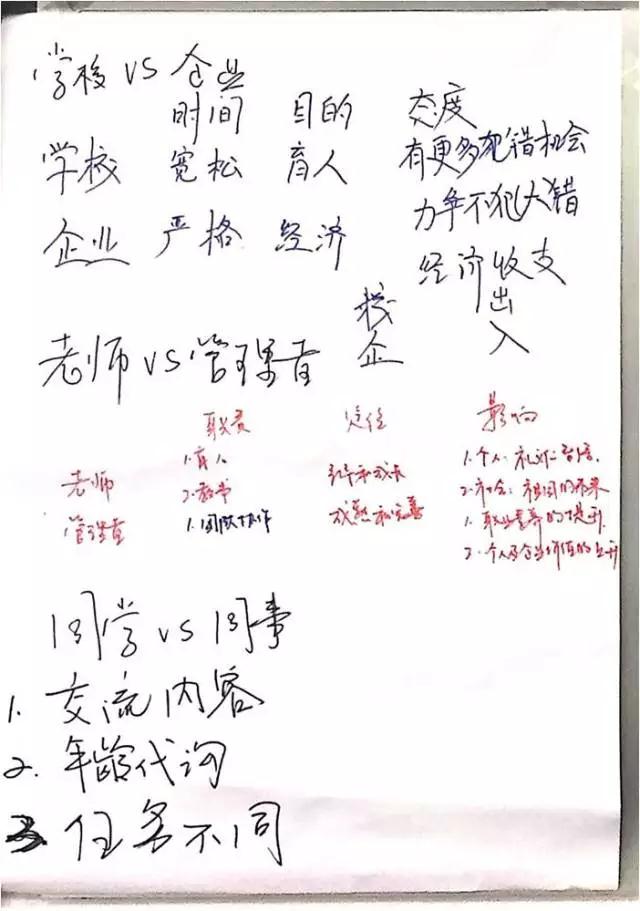 学校 VS 企业
时间 目的 态度
学校 宽松 育人 有更多犯错机会
力争不犯大错
企业 严格 经济
经济收支
校 出
老师 VS 管理者 企 入
职责 定位 影响
1.育人 1.个人:礼仪
老师 2.教书 和成长 2.社会:祖国的未来
管理者 1.团队协作 成熟和完善 1.职业素养的提升
2.个人及企业价值的上升
同学 VS 同事
1. 交流内容
2. 年龄代沟
3 任务不同